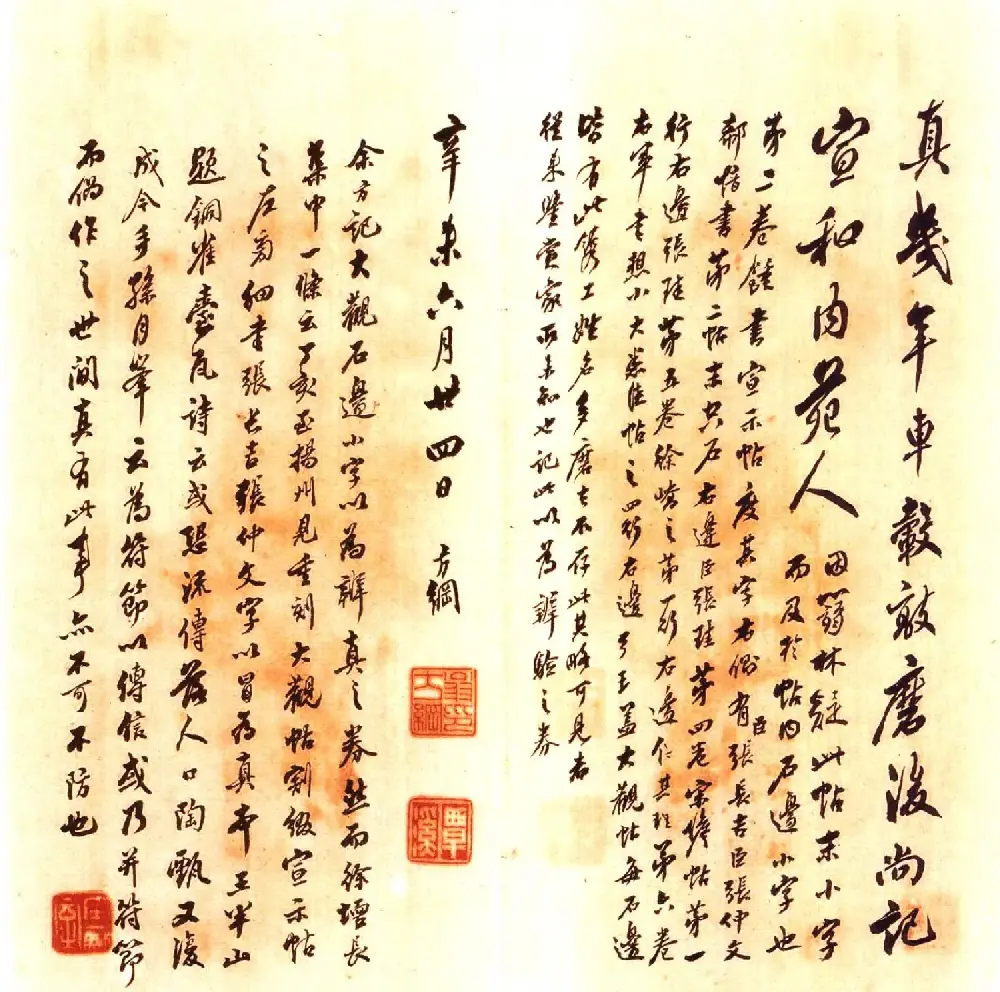 真幾年車轂敲磨後尚記
宣和內苑人
因蒻林疑此帖末小字
而及於帖內石邊小字也
第二卷鍾書宣示帖度其字右側有臣張長吉臣張仲文
郗愔書第二帖末共石右邊臣張珪第四卷宋儋帖第一
行右邊張珪第五卷徐嶠之第一行右邊仁其珪第六卷
右軍書想小大悉佳帖之四行右邊亨王蓋大觀帖每石邊
皆有此鐫工姓名多磨去不存此其略可見者
從來鑒賞家所未知也記此以為辨驗之券
辛未六月廿四日 方綱
余方記大觀石邊小字以為辨真之券然而徐壇長
集中一條云丁亥至揚州見重刻大觀帖割綴宣示帖
之左旁細書張長吉張仲文字以冒為真本王半山
題銅雀臺瓦詩云或恐流傳落人口陶甄又復
成今手孫月峯云為符節以傳信或乃并符節
而偽作之世間真有此事亦不可不防也
覃溪